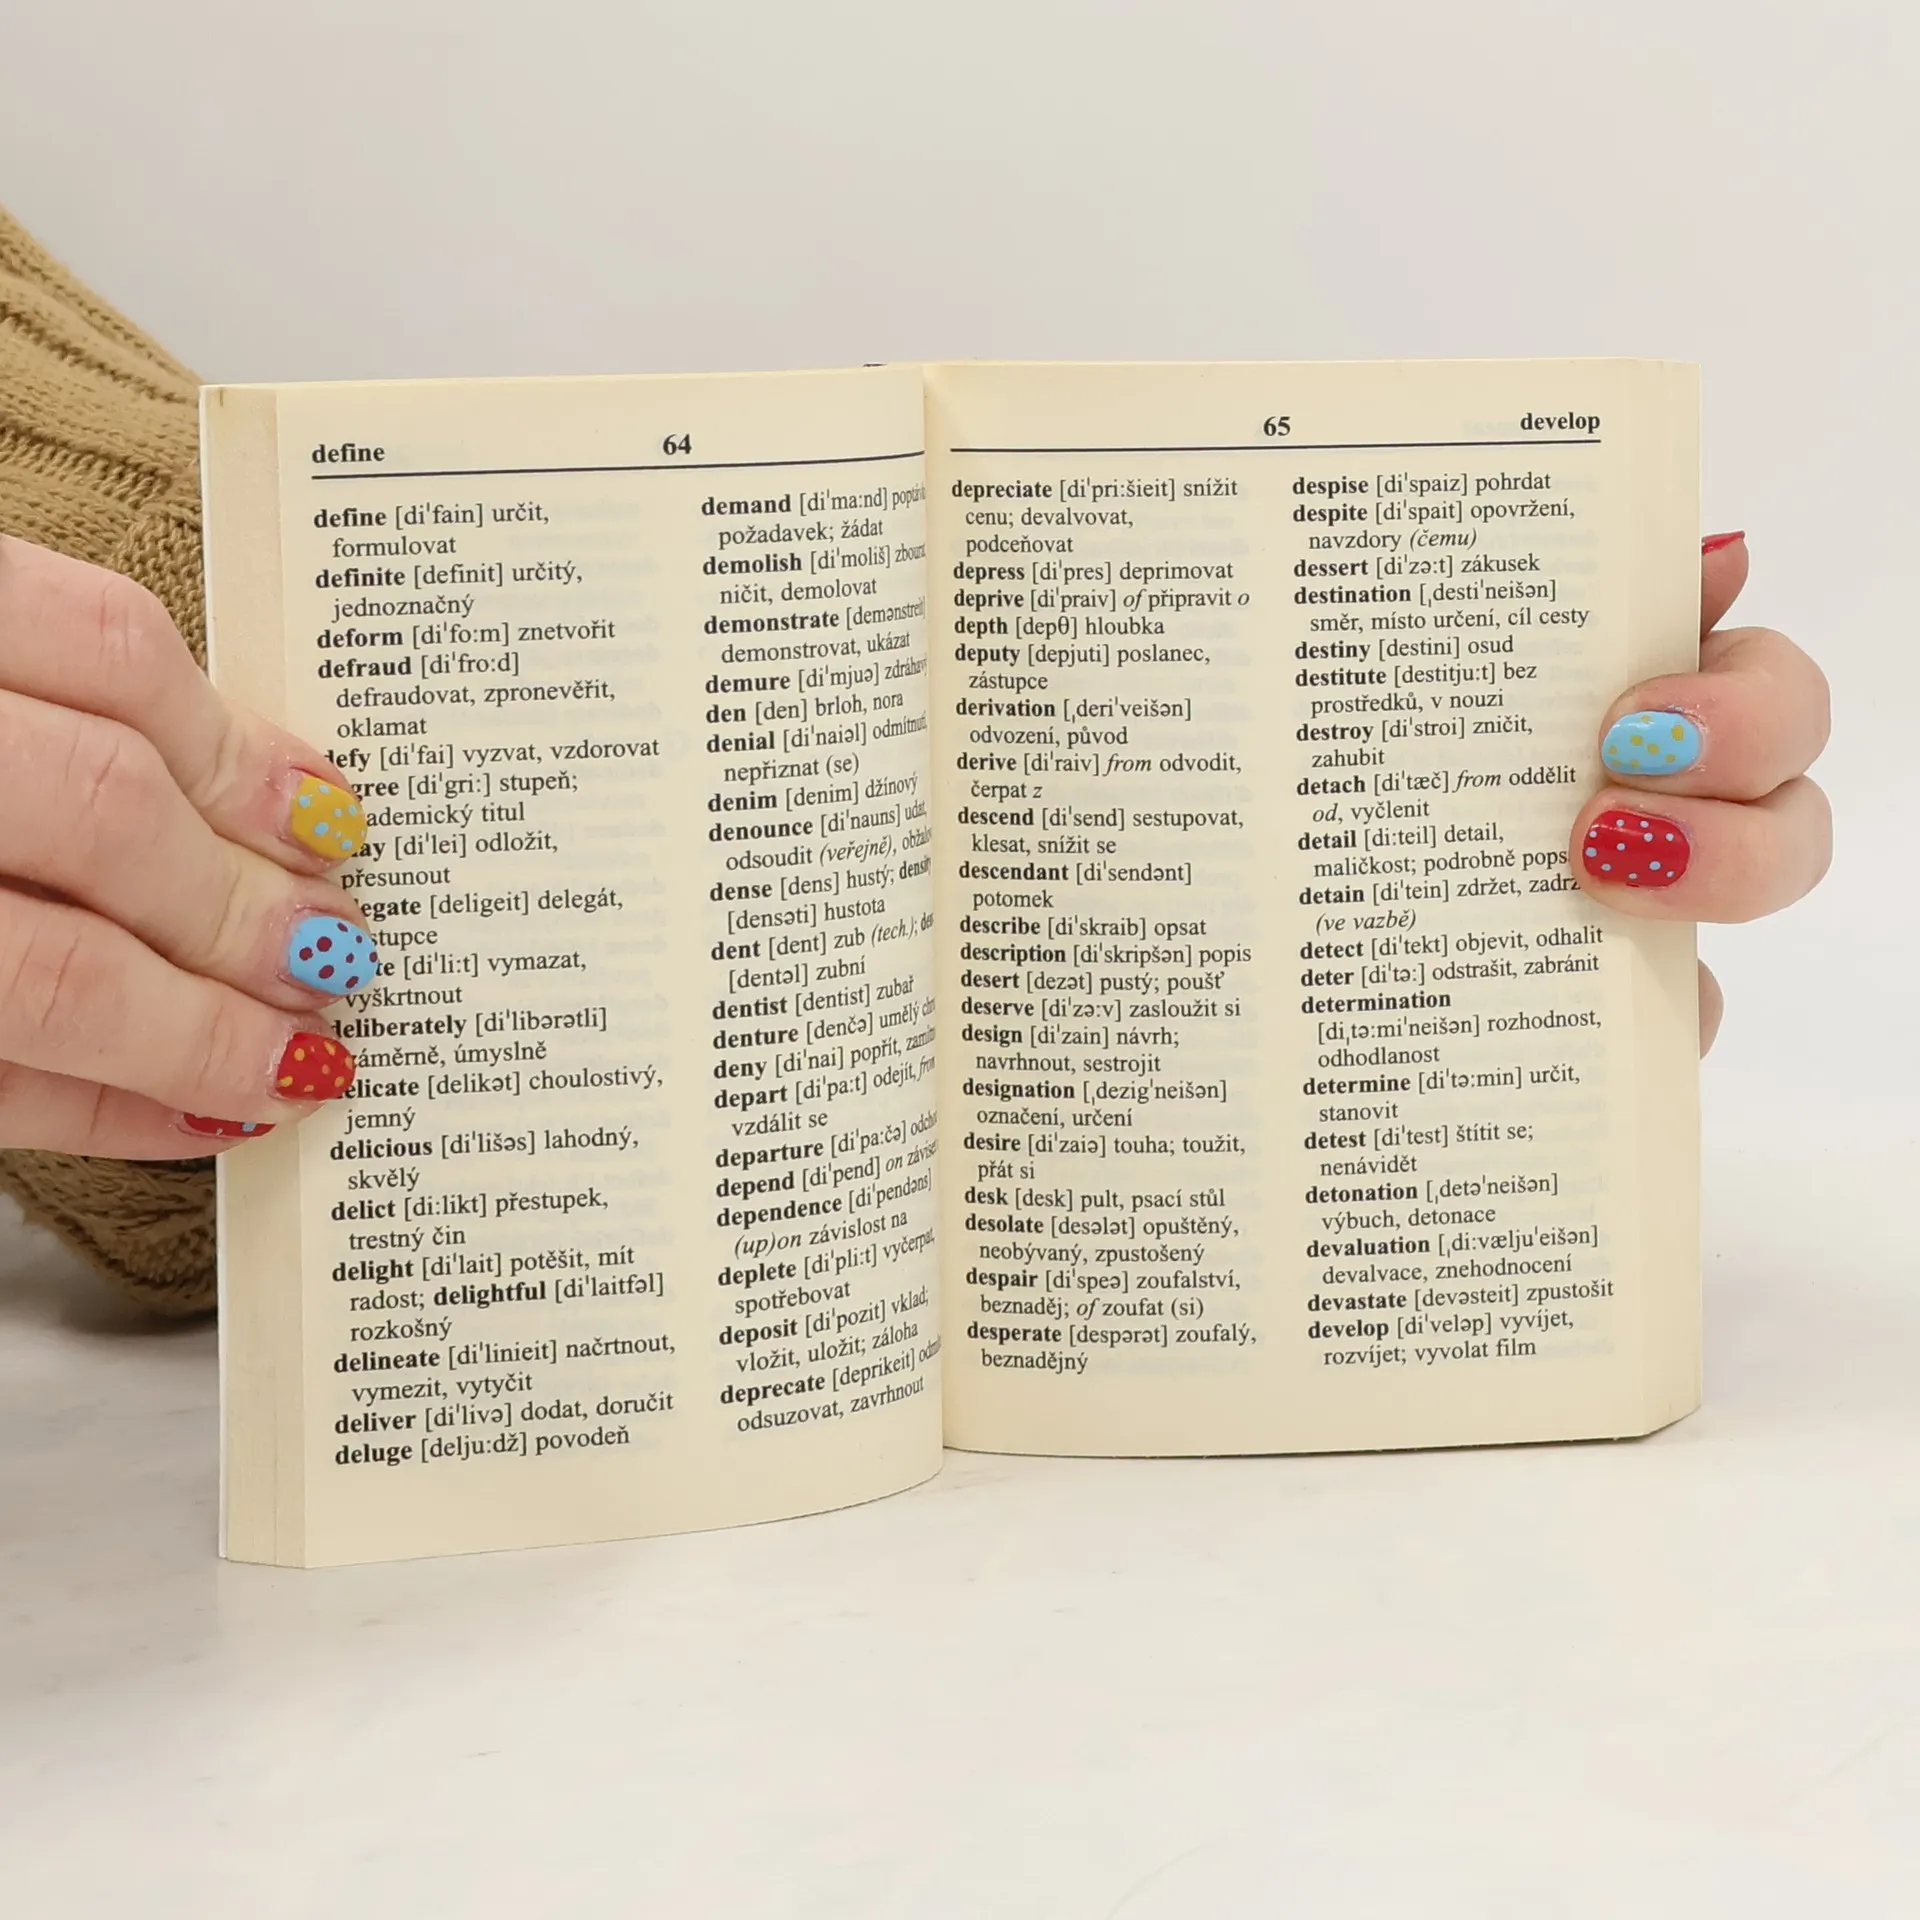 define 64
define [di'fain] určit,
formulovat
definite [definit] určitý,
jednoznačný
deform [di'fo:m] znetvořit
defraud [di'fro:d]
defraudovat, zpronevěřit,
oklamat
[di'fai] vyzvat, vzdorovat
[di'gri:] stupeň;
titul
[di'lei] odložit,
přesunout
[deligeit] delegát,
[di'li:t] vymazat,
vyškrtnout
deliberately [di'libərətli]
záměrně, úmyslně
[delikət] choulostivý,
jemný
delicious [di'lišəs] lahodný,
skvělý
delict [di:likt] přestupek,
trestný čin
delight [di'lait] potěšit, mít
radost; delightful [di'laitfəl]
rozkošný
delineate [di'linieit] načrtnout,
vymezit, vytyčit
deliver [di'livə] dodat, doručit
deluge [delju:dž] povodeň
demand [di'ma:nd]
požadavek; žádat
demolish [di'moliš]
ničit, demolovat
demonstrate [demənstreit]
demonstrovat, ukázat
demure [di'mjuə]
den [den] brloh, nora
denial [di'naiəl]
nepřiznat (se)
denim [denim] džínový
denounce [di'nauns]
odsoudit (veřejně),
dense [dens] hustý;
[densəti] hustota
dent [dent] zub (tech.);
[dentəl] zubní
dentist [dentist] zubař
denture [denčə] umělý
deny [di'nai] popřít,
depart [di'pa:t] odejít,
vzdálit se
departure [di'pa:čə]
depend [di'pend] on
dependence [di'pendəns]
(up)on závislost na
deplete [di'pli:t]
spotřebovat
deposit [di'pozit] vklad;
vložit, uložit; záloha
deprecate [deprikeit]
odsuzovat, zavrhnout
65 develop
depreciate [di'pri:šieit] snížit
cenu; devalvovat,
podceňovat
depress [di'pres] deprimovat
deprive [di'praiv] of připravit o
depth [depθ] hloubka
deputy [depjuti] poslanec,
zástupce
derivation [ˌderi'veišən]
odvození, původ
derive [di'raiv] from odvodit,
čerpat z
descend [di'send] sestupovat,
klesat, snížit se
descendant [di'sendənt]
potomek
describe [di'skraib] opsat
description [di'skripšən] popis
desert [dezət] pustý; poušť
deserve [di'zə:v] zasloužit si
design [di'zain] návrh;
navrhnout, sestrojit
designation [ˌdezig'neišən]
označení, určení
desire [di'zaiə] touha; toužit,
přát si
desk [desk] pult, psací stůl
desolate [desələt] opuštěný,
neobývaný, zpustošený
despair [di'speə] zoufalství,
beznaděj; of zoufat (si)
desperate [despərət] zoufalý,
beznadějný
despise [di'spaiz] pohrdat
despite [di'spait] opovržení,
navzdory (čemu)
dessert [di'zə:t] zákusek
destination [ˌdesti'neišən]
směr, místo určení, cíl cesty
destiny [destini] osud
destitute [destitju:t] bez
prostředků, v nouzi
destroy [di'stroi] zničit,
zahubit
detach [di'tæč] from oddělit
od, vyčlenit
detail [di:teil] detail,
maličkost; podrobně
detain [di'tein] zdržet,
(ve vazbě)
detect [di'tekt] objevit, odhalit
deter [di'tə:] odstrašit, zabránit
determination
[diˌtə:mi'neišən] rozhodnost,
odhodlanost
determine [di'tə:min] určit,
stanovit
detest [di'test] štítit se;
nenávidět
detonation [ˌdetə'neišən]
výbuch, detonace
devaluation [ˌdi:vælju'eišən]
devalvace, znehodnocení
devastate [devəsteit] zpustošit
develop [di'veləp] vyvíjet,
rozvíjet; vyvolat film